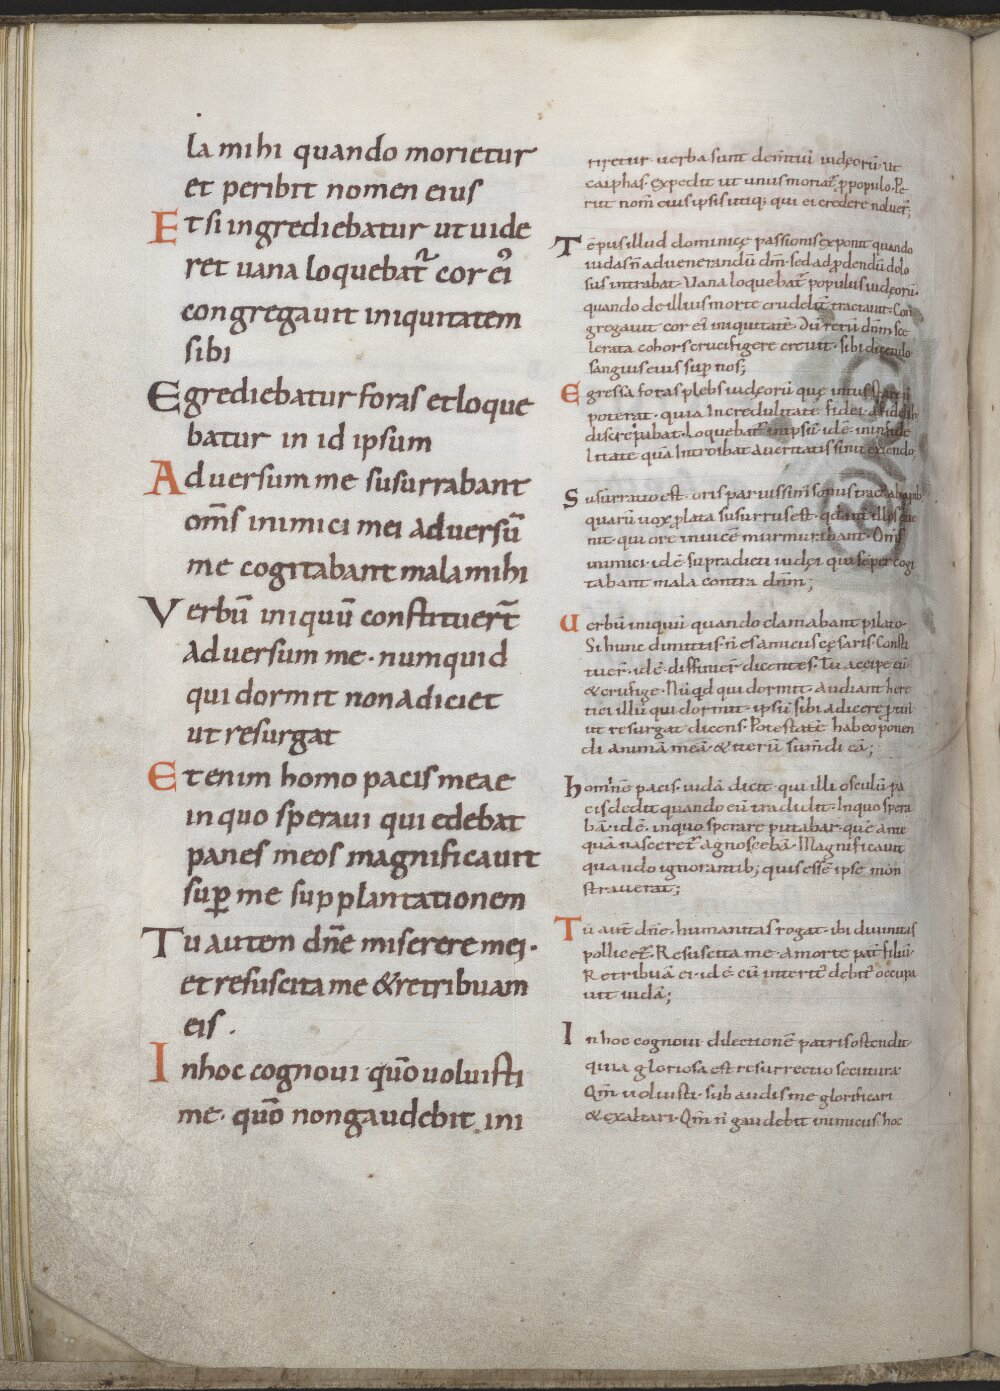 la mihi quando morietur
et peribit nomen eius
Et si ingrediebatur ut uide
ret uana loquebat̃ cor ei
congregauit iniquitatem
sibi
Egrediebatur foras et loque
batur in id ipsum
Aduersum me susurrabant
om̄s inimici mei aduersū
me cogitabant mala mihi
Verbū iniquū constituer̄t
aduersum me · numquid
qui dormit non adiciet
ut resurgat
Etenim homo pacis meae
in quo speraui qui edebat
panes meos magnificauit
suꝑ me supplantationem
Tu autem dn̄e miserere mei ·
et resuscita me & retribuam
eis .
In hoc cognoui quō uoluisti
me · quō non gaudebit ini
riretur uerba sunt dementiū iudęorū ut
caiphas · Expedit ut unus moriat̃ ꝓ populo · Pe
rut nom̄ eius ipsis utiq; qui ei credere noluer̄;
Tēpus illud dominicę passionis exponit quando
iudas n̄ ad uenerandū dn̄m · sed ad ꝓdendū dolo
sus intrabat · Uana loquebat̃ populus iudęorū ·
quando de illius morte crudelit̃ tractauit · Con
gregauit cor ei iniquitatē · Dū rerū dn̄m sce
lerata cohors crucifigere creuit · sibi dicendo
sanguis eius suꝑ nos;
Egressa foras plebs iudęorū quę intus stare n̄
poterat · quia Incredulitate fidei · a fidelib
discrepabat · Loquebat̃ in ipsū · idē · in infide
litate qua Introibat a ueritatis sinu exiendo;
Susurratio est · oris paruissim̄ sonus
quarū uox ꝓlata susurrus est ·
nit · qui ore inuicē murmuribant · Om̄s
inimici · idē · supradicti iudęi qui sēper cogi
tabant mala contra dn̄m;
Uerbū iniquū quando clamabant pilato ·
Si hunc dimittis · n̄ es amicus cęsaris · Consti
tuer̄ · idē · diffinier̄ dicentes · Tu accipe eū
& crufige · Nūqđ qui dormit · Audiant here
tici illū qui dormit · ipsū sibi adicere
ut resurgat dicens · Potestatē habeo ponen
di animā meā · & iterū sumdi eā;
hominē pacis · iudā dicit · qui illi osculū pa
cis dedit quando eū tradidit · In quo spera
bā · idē · in quo sperare putabar · quē ante
quā nasceret̃ agnoscebā · Magnificauit
quando ignorantib; quis esset ipse mon
strauerat;
Tu aut̄ dn̄e · humanitas rogat · ibi diuinitas
pollicet̃ · Resuscita me · a morte pat̃ filiū ·
Retribuā ei · idē · cū interit̃ debit̃ occupa
uit iudā;
In hoc cognoui dilectionē patris ostendit
quia gloriosa est resurrectio secutura
Qm̄ uoluisti · subaudis me glorificari
& exaltari · Qm̄ n̄ gaudebit inimicus · hoc